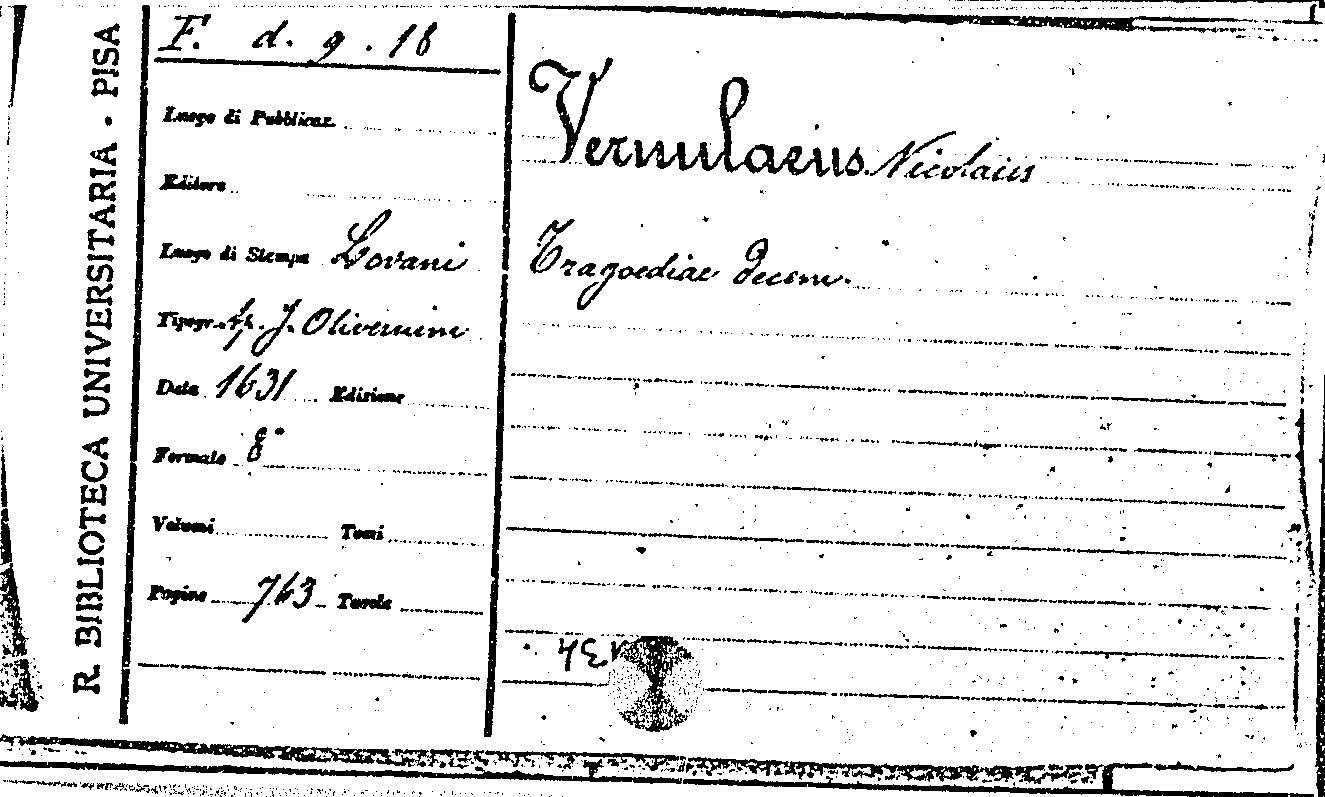 R. BIBLIOTECA UNIVERSITARIA - PISA
F. d. 9. 18
Luogo di Pubblicaz.
Editore
Luogo di Stampa Lovani
Tipogr. J. Olivernini
Data 1631 Edizione
Formato 8°
Volumi Tomi
Pagine 763 Tavole
Vernulaeus Nicolaus
Tragoediae decem.